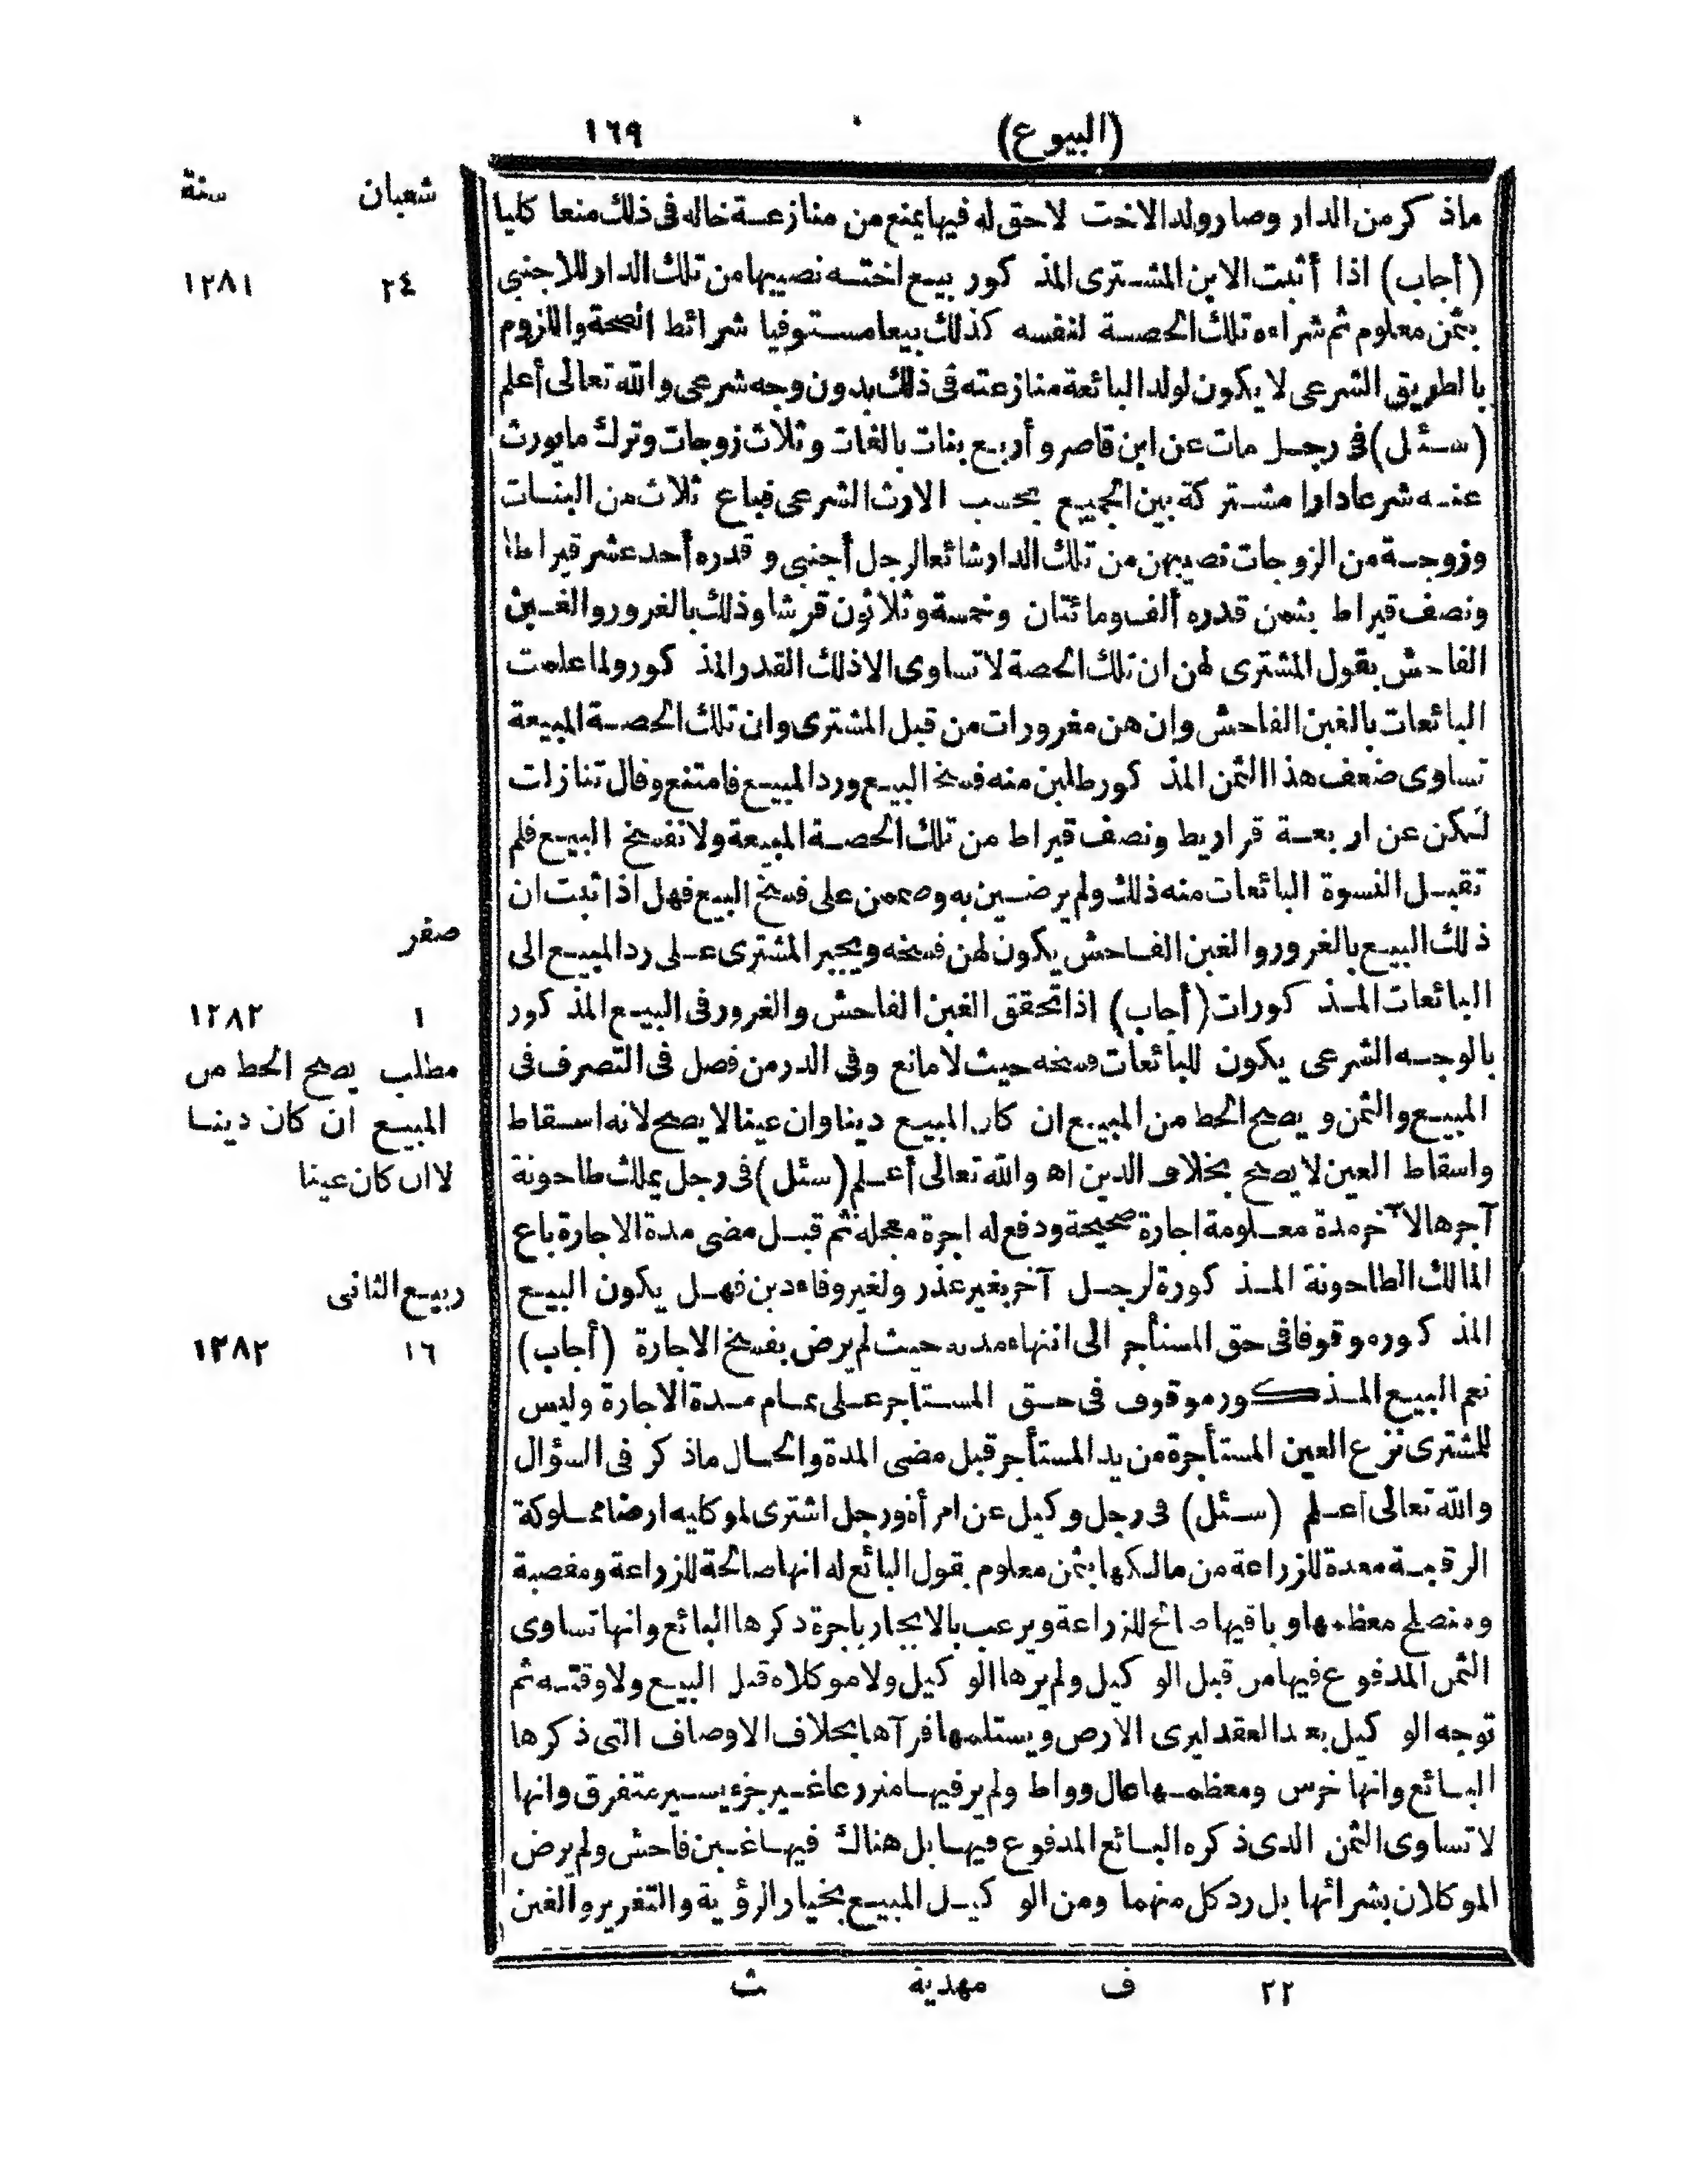 (البيوع) ١٦٩
شعبان سنة
ماذكر من الدار وصار ولد الاخت لاحق له فيها يمنع من منازعة خاله فى ذلك منعا كليا
٢٤ ١٢٨١
(أجاب) اذا أثبت الابن المشترى المذكور بيع اخته نصيبها من تلك الدار للاجنبى
بثمن معلوم ثم شراءه تلك الحصة لنفسه كذلك بيعا مستوفيا شرائط الصحة واللزوم
بالطريق الشرعى لا يكون لولد البائعة منازعته فى ذلك بدون وجه شرعى والله تعالى أعلم
(سئل) فى رجل مات عن ابن قاصر وأربع بنات بالغات وثلاث زوجات وترك ما يورث
عنه شرعا دارا مشتركة بين الجميع بحسب الارث الشرعى فباع ثلاث من البنات
وزوجة من الزوجات نصيبهن من تلك الدار شائعا لرجل أجنبى وقدره أحد عشر قيراطا
ونصف قيراط بثمن قدره ألف ومائتان وخمسة وثلاثون قرشا وذلك بالغرور والغبن
الفاحش بقول المشترى لهن ان تلك الحصة لا تساوى الا ذلك القدر المذكور ولما علمت
البائعات بالغبن الفاحش وان هن مغرورات من قبل المشترى وان تلك الحصة المبيعة
تساوى ضعف هذا الثمن المذكور طلبن منه فسخ البيع ورد المبيع فامتنع وقال تنازلت
لكن عن اربعة قراريط ونصف قيراط من تلك الحصة المبيعة ولا نفسخ البيع فلم
تقبل النسوة البائعات منه ذلك ولم يرضين به وصممن على فسخ البيع فهل اذا ثبت ان
صفر
ذلك البيع بالغرور والغبن الفاحش يكون لهن فسخه ويجبر المشترى على رد المبيع الى
١ ١٢٨٢
البائعات المذكورات (أجاب) اذا تحقق الغبن الفاحش والغرور فى البيع المذكور
مطلب يصح الحط من
بالوجه الشرعى يكون للبائعات فسخه حيث لا مانع وفى الدر من فصل فى التصرف فى
المبيع ان كان دينا
المبيع والثمن ويصح الحط من المبيع ان كان المبيع دينا وان عينا لا يصح لانه اسقاط
لا ان كان عينا
واسقاط العين لا يصح بخلاف الدين اه والله تعالى أعلم (سئل) فى رجل يملك طاحونة
آجرها لآخر مدة معلومة اجارة صحيحة ودفع له اجرة معجلة ثم قبل مضى مدة الاجارة باع
ربيع الثانى
المالك الطاحونة المذكورة لرجل آخر بغير عذر ولغير وفاء دين فهل يكون البيع
١٦ ١٢٨٢
المذكور موقوفا فى حق المستأجر الى انتهاء مدته حيث لم يرض بفسخ الاجارة (أجاب)
نعم البيع المذكور موقوف فى حق المستأجر على تمام مدة الاجارة وليس
للمشترى نزع العين المستأجرة من يد المستأجر قبل مضى المدة والحال ماذكر فى السؤال
والله تعالى أعلم (سئل) فى رجل وكيل عن امرأة ورجل اشترى لموكليه ارضا مملوكة
الرقبة معدة للزراعة من مالكها بثمن معلوم بقول البائع له انها صالحة للزراعة ومقصبة
ومنصلح معظمها وباقيها صالح للزراعة ويرغب بالايجار باجرة ذكرها البائع وانها تساوى
الثمن المدفوع فيها من قبل الوكيل ولم يرها الوكيل ولا موكلاه قبل البيع ولا وقته ثم
توجه الوكيل بعد العقد ليرى الارض ويستلمها فرآها بخلاف الاوصاف التى ذكرها
البائع وانها خرس ومعظمها مال وواط ولم ير فيها منزرعا غير جزء يسير متفرق وانها
لا تساوى الثمن الذى ذكره البائع المدفوع فيها بل هناك فيها غبن فاحش ولم يرض
الموكلان بشرائها بل رد كل منهما ومن الوكيل المبيع بخيار الرؤية والتغرير والغبن
٢٢ ف مهدية ث